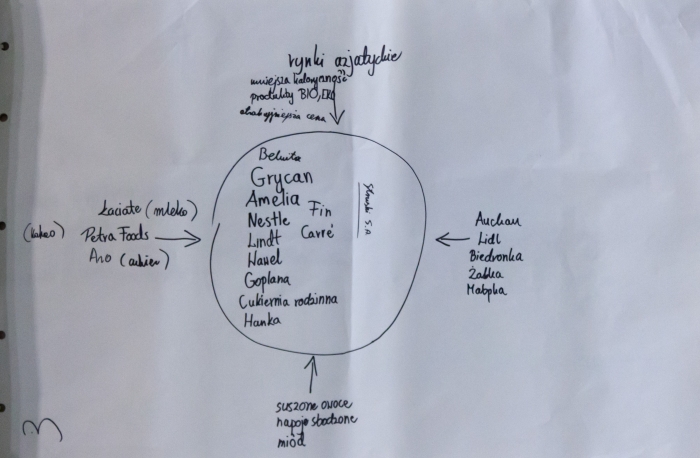 rynki azjatyckie
mniejsza kaloryczność
produkty BIO, EKO
atrakcyjniejsza cena
Beluta
Grycan
Amelia
Nestle
Fin
Carré
Lindt
Wawel
Goplana
Cukiernia rodzinna
Hanka
S.A
Łaciate (mleko)
(kakao) Petra Foods
Aro (cukier)
Auchan
Lidl
Biedronka
Żabka
Małpka
suszone owoce
napoje słodzone
miód
3